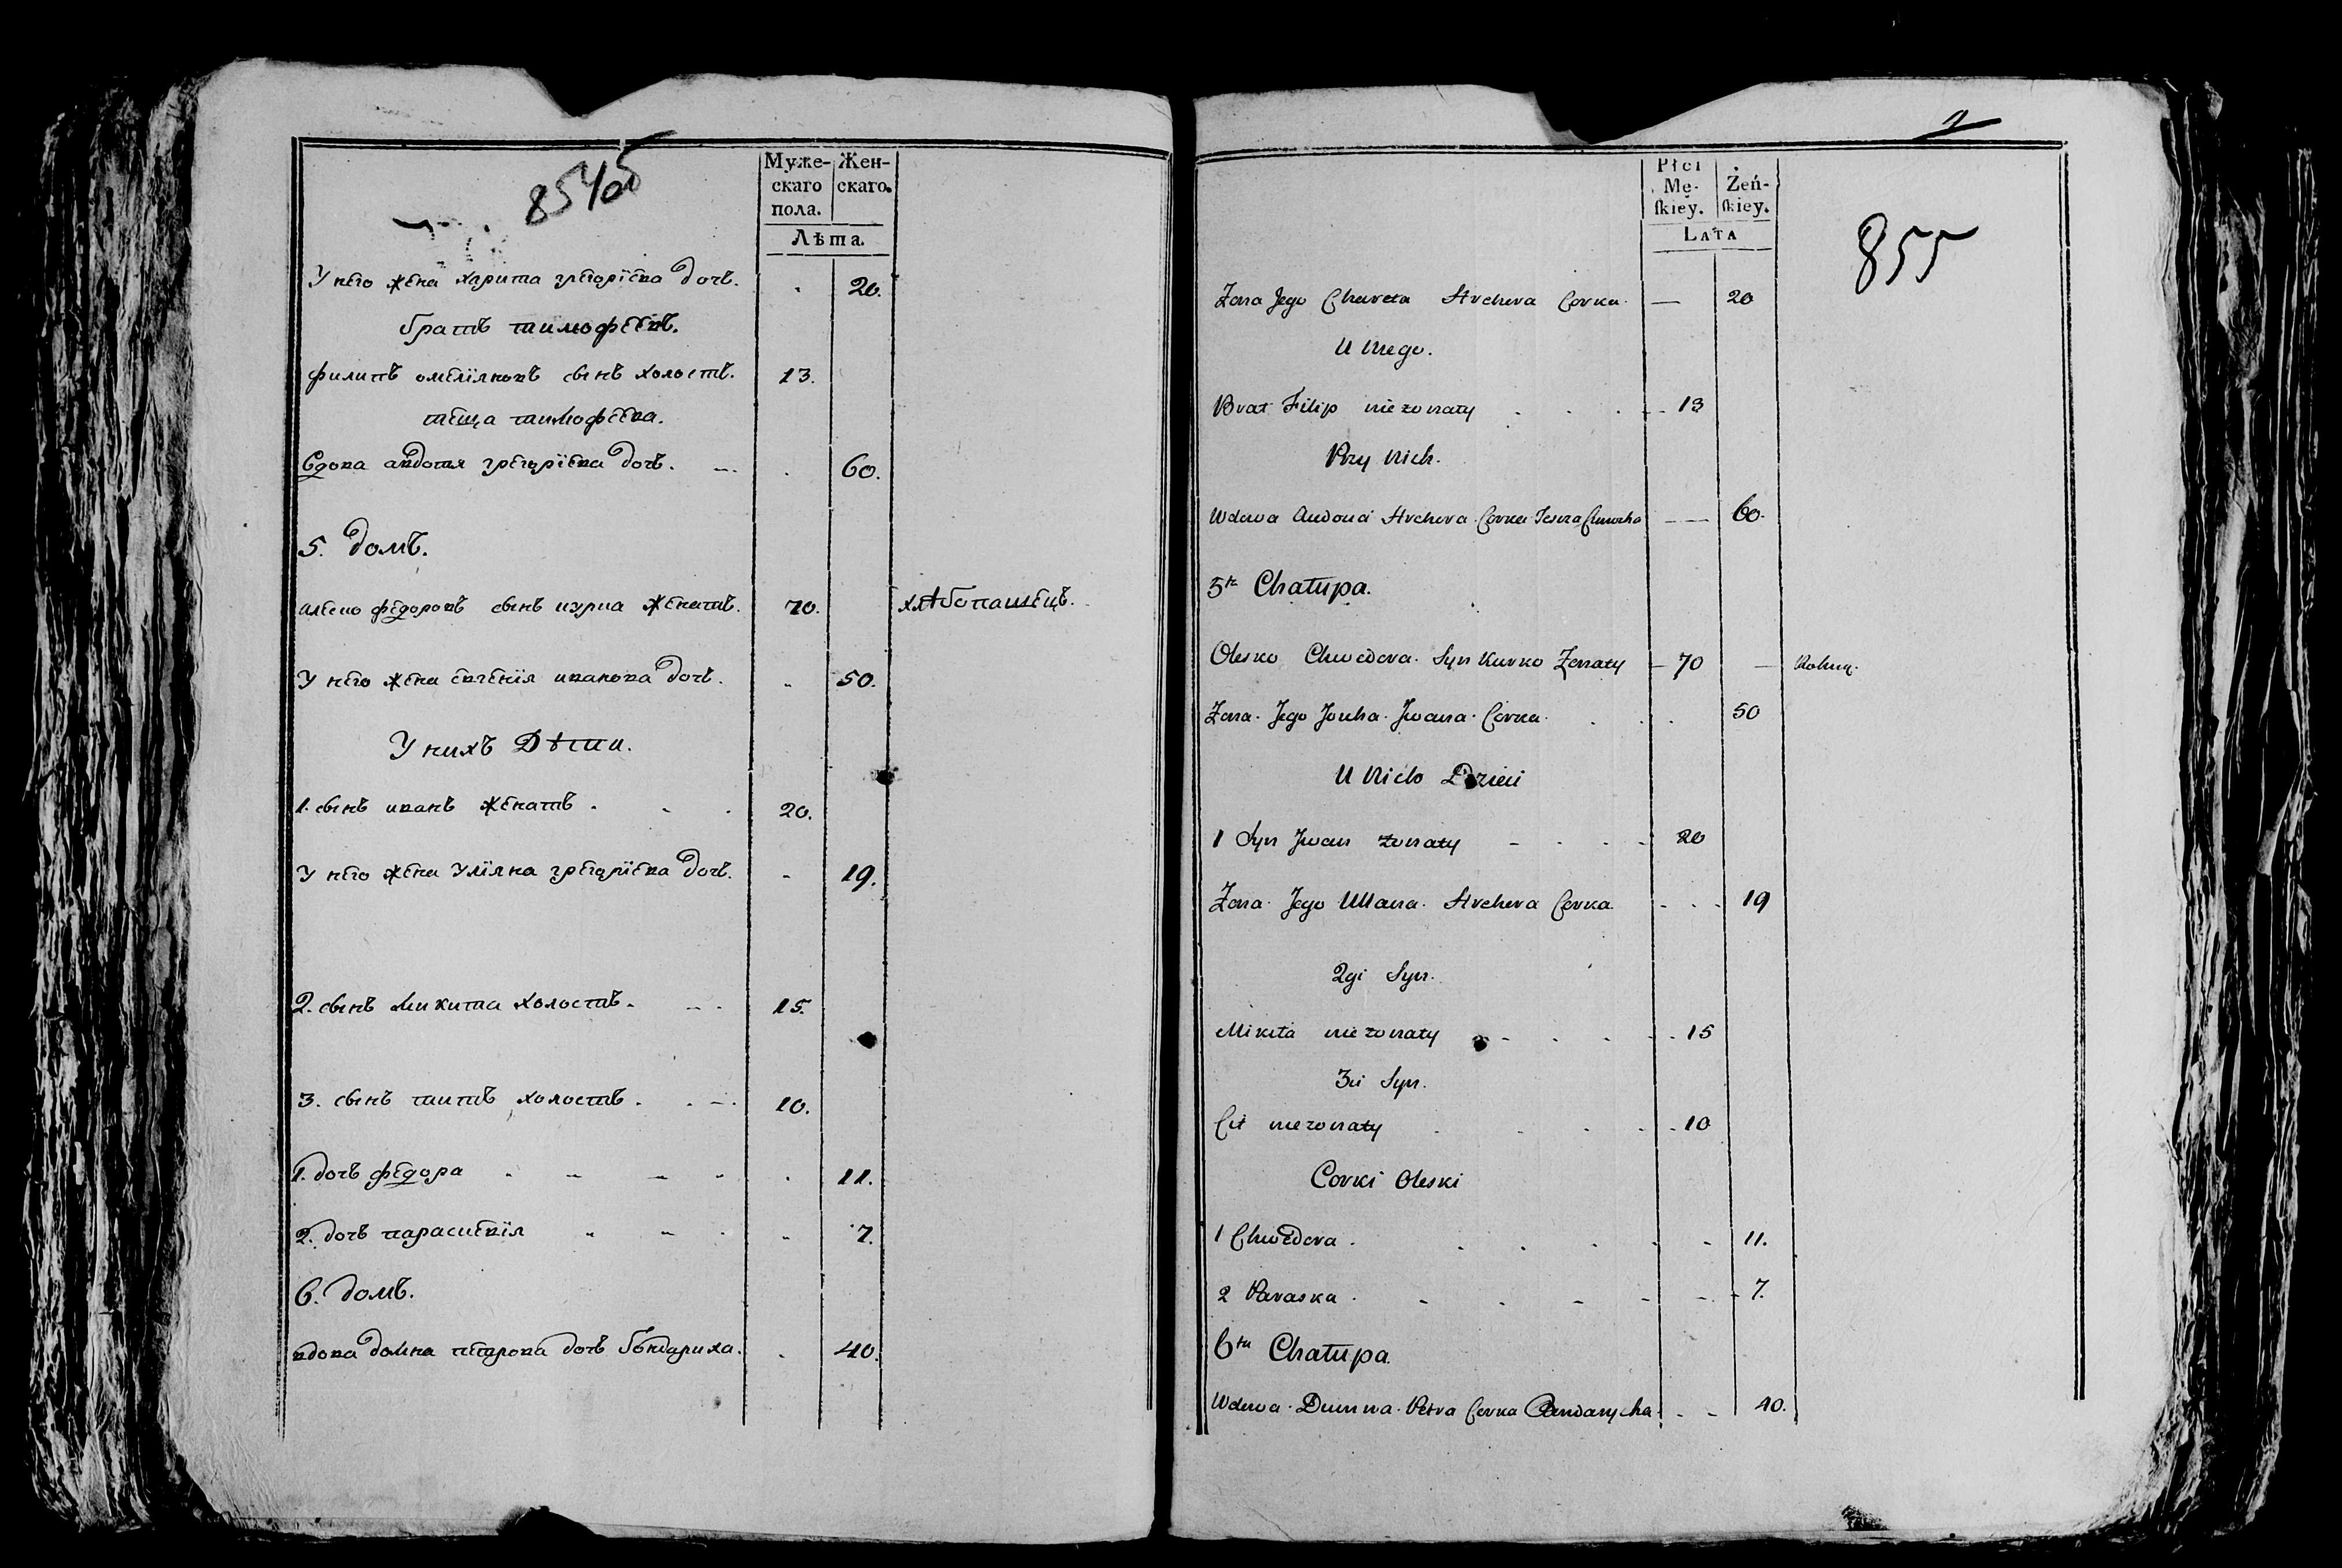 854об
Муже-
скаго
пола.
Жен-
скаго.
Лѣта.
У него жена харита григорїева дочь. . 20.
братъ тимофеевъ.
филипъ омелїяновъ сынъ холостъ. 13.
теща тимофеева.
Вдова авдотя григорїева дочь. . 60.
5. домъ.
алеско федоровъ сынъ журка женатъ. 70. хлѣбопашецъ.
У него жена евгенїя иванова дочь. . 50.
У нихъ Дѣти.
1. сынъ иванъ женатъ. 20.
У него жена улїяна григорїева дочь. - 19.
2. сынъ микита холостъ. 15.
3. сынъ титъ холостъ. 10.
1. дочь федора . 11.
2. дочь парасцевїя . 7.
6. домъ.
вдова домна петрова дочь бондариха. . 40.
Płci
Mę-
skiey.
Żeń-
skiey.
LATA
855
Zona Jego Chareta Hrehera Corka. — 20
U Niego.
Brat Filip niezonaty 13
Przy Nich.
Wdowa Audocia Hrehera Corka — 60.
5ta Chałupa.
Olesko Chwedora Syn Kurko Zonaty — 70 — Rolnik.
Zona Jego Jouha Jwana Corka. 50
U Nich Dzieci
1 Syn Jwan zonaty 20
Zona Jego Ullana Hrehera Corka 19
2gi Syn.
Mikita niezonaty 15
3ci Syn.
Cit niezonaty 10
Corki Oleski
1 Chwedora. 11.
2 Paraska. 7.
6ta Chałupa.
Wdowa Dumna Petra Corka Bondarycha. 40.